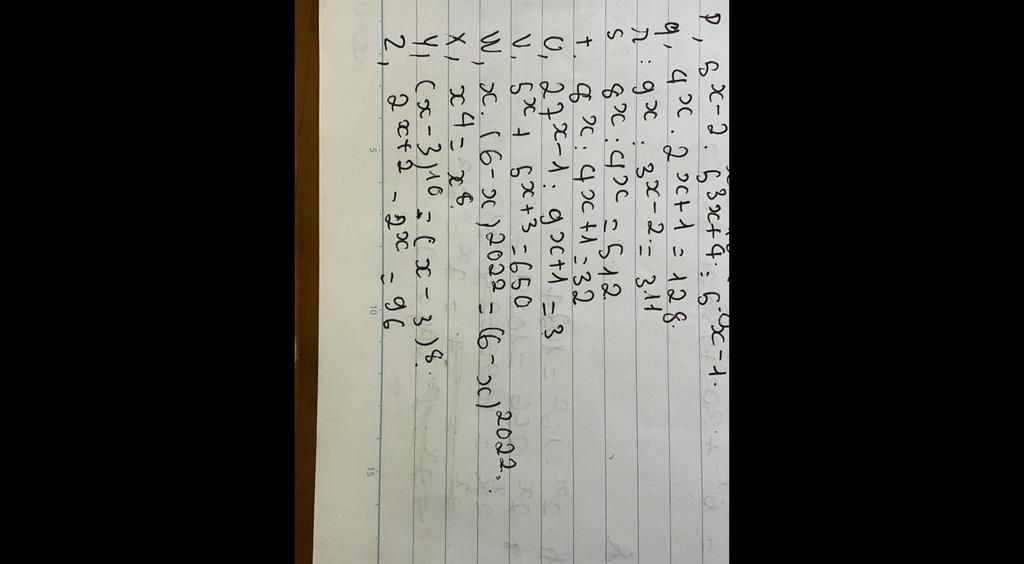 P, 5x-2. 53x+4.= 5-9x-1.
q, 4x. 2x+1 = 128.
r: 9x: 3x-2= 3.11
s 8x: 4x = 512
t. 8x: 4x+1=32
U, 27x-1: 9x+1 = 3
V, 5x + 5x+3 = 650
W, x. (6-x)2022 = (6-x)2022.
X, x4 = x8.
Y, (x-3)10 = (x-3)8.
Z, 2x+2 - 2x = 96
5
10
15